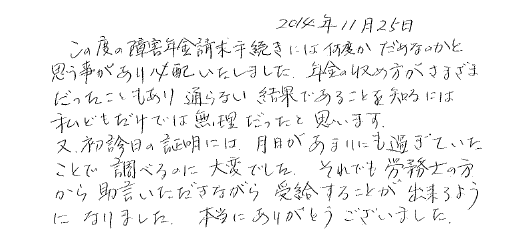 2014年11月25日
この度の障害年金請求手続きには何度かだめなのかと
思う事があり心配いたしました。年金の収め方がさまざま
だったこともあり通らない結果であることを知るには
私どもだけでは無理だったと思います。
又、初診日の証明には、月日があまりにも過ぎていた
ことで調べるのに大変でした。それでも労務士の方
から助言いただきながら受給することが出来るよう
になりました。本当にありがとうございました。